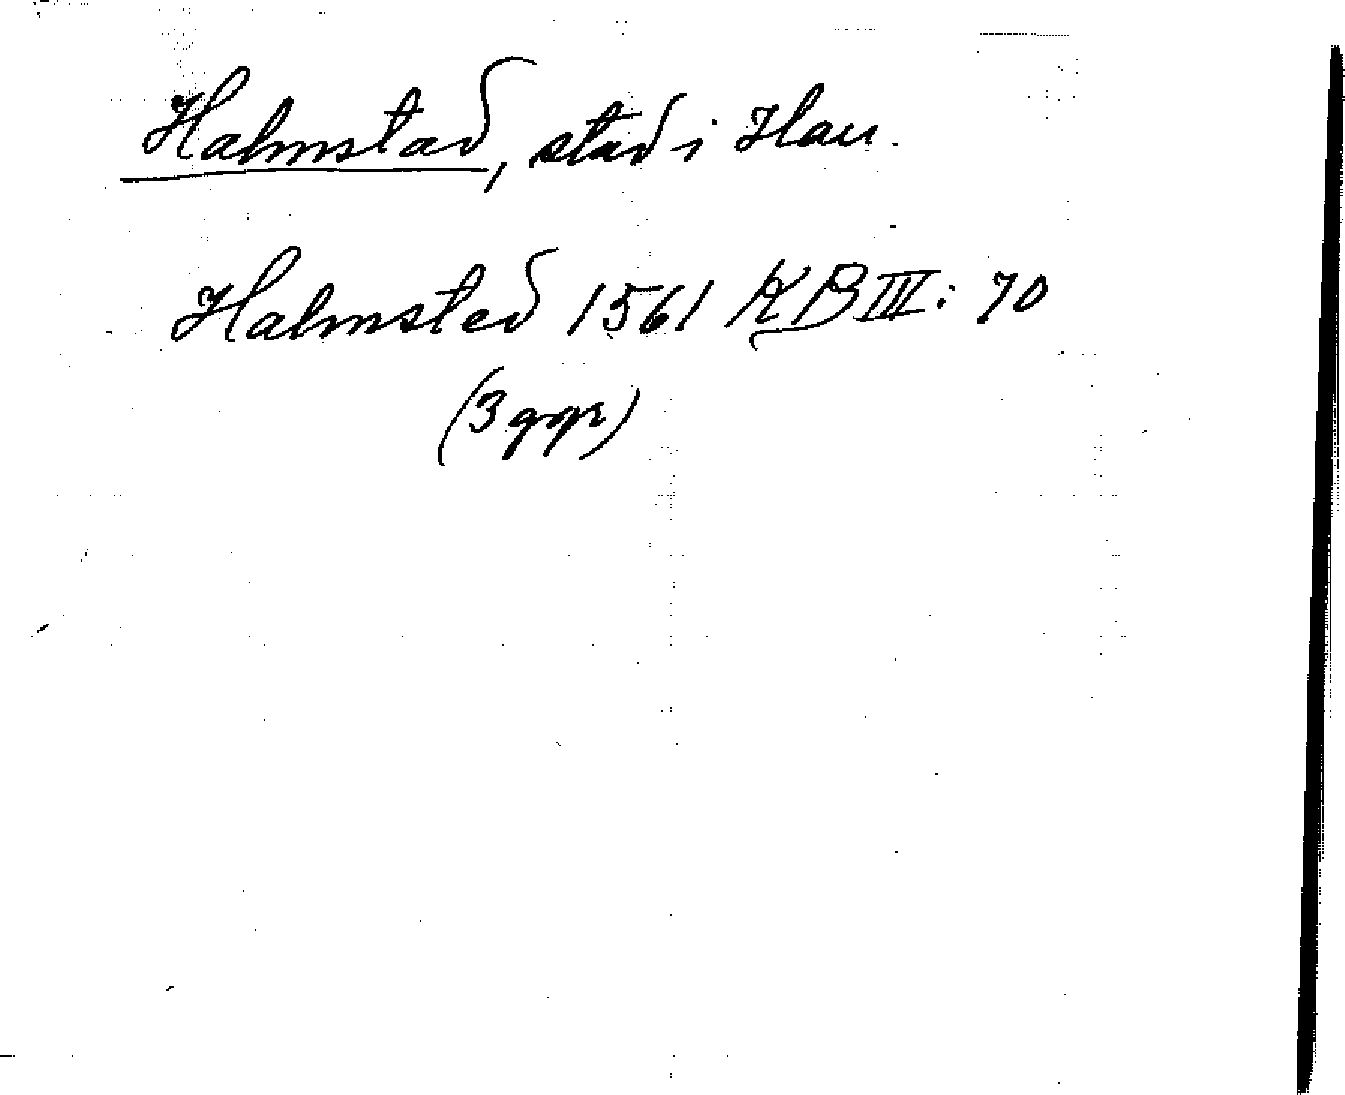 Halmstad, stad i Hall.
Halmsted 1561 KB III: 70
(3 ggr)